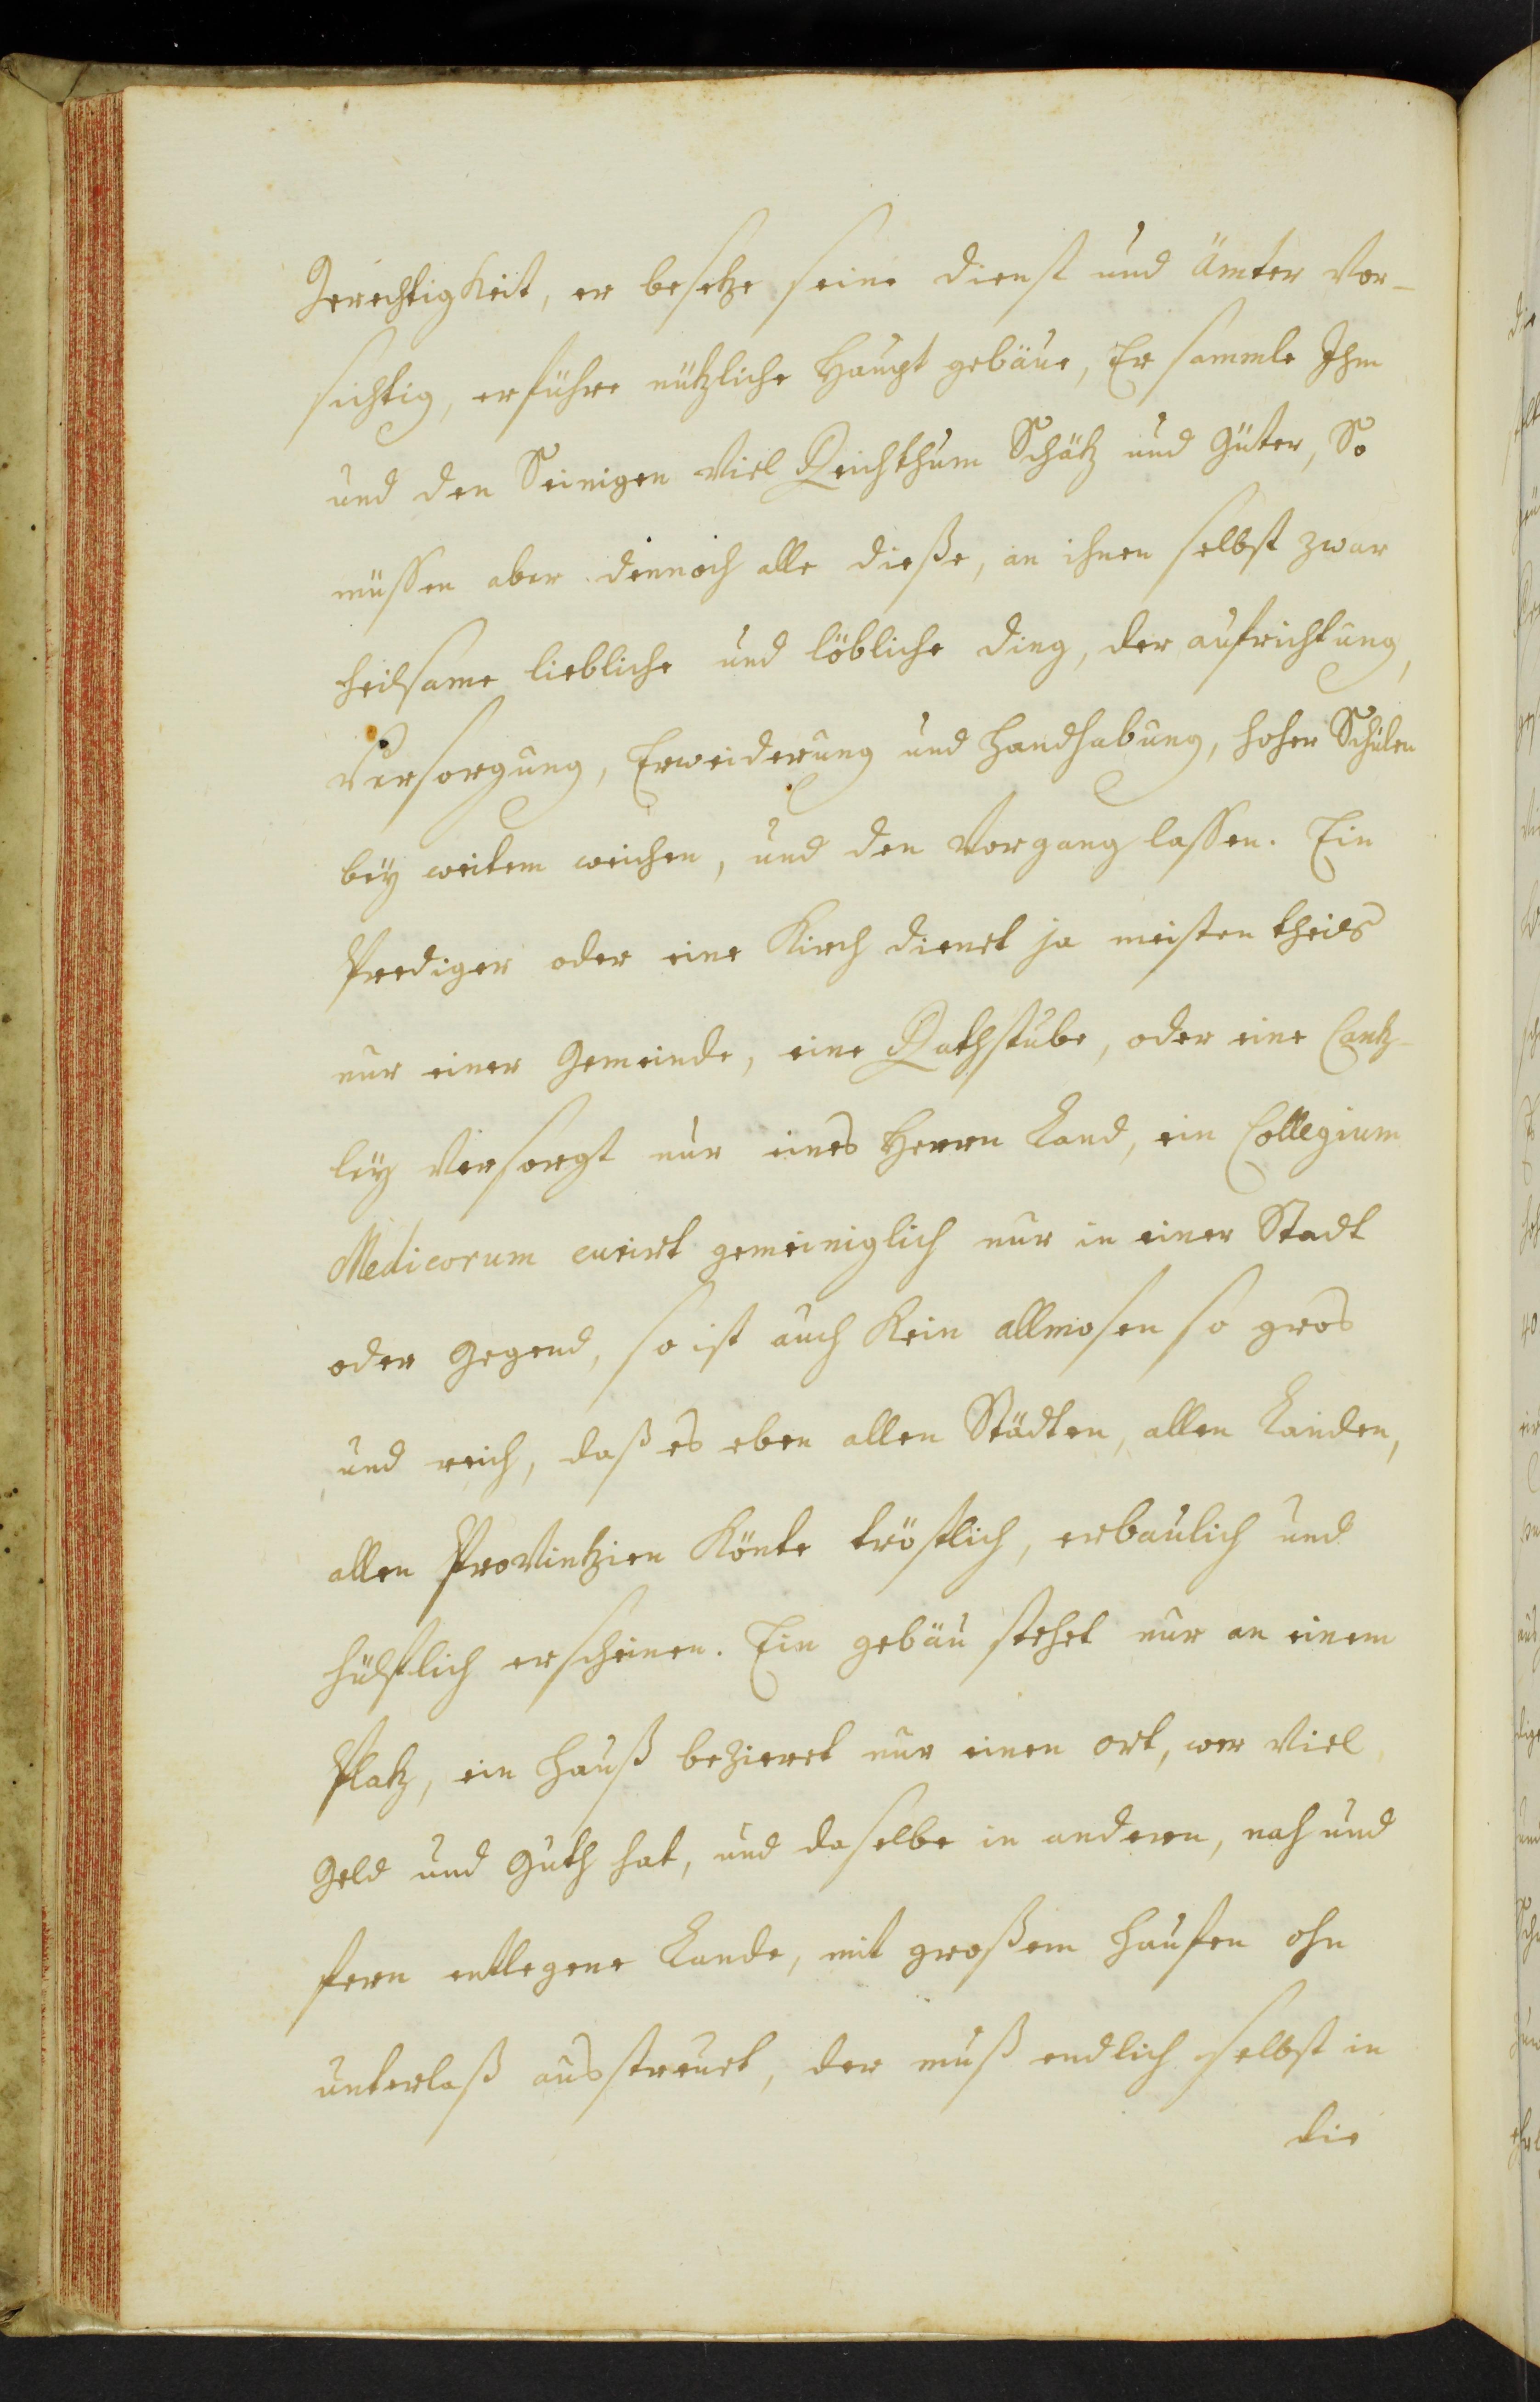 Gerechtigkeit, er besetze seine dienst und Ämter vor-
sichtig, er führe nützliche Haupt gebäue, Er sammle Ihm
und den Seinigen viel Reichthum Schätz und Güter, So
müssen aber dennoch alle dieße, an ihnen selbst zwar
heilsame liebliche und löbliche ding, der aufrichtung,
Versorgung, Erweiderung und Handhabung, hoher Schulen
beÿ weitem weichen, und den Vorgang lassen. Ein
Prediger oder eine Kirch dienet ja meisten theils
nur einer Gemeinde, eine Rathstube, oder eine Cantz-
leÿ versorgt nur eines Herrn Land, ein Collegium
Medicorum curirt gemeiniglich nur in einer Stadt
oder Gegend, so ist auch kein allmosen so gros
und reich, daß es eben allen Städten, allen Landen,
allen Provintzien könte tröstlich, erbaulich und
hülflich erscheinen. Ein gebäu stehet nur an einem
Platz, ein Hauß bezieret nur einen ort, wer viel
Geld und Guth hat, und daselbe in anderen, nah und
fern entlegene Lande, mit großem Haufen ohn
unterlaß ausstreuet, der muß endlich selbst in
die